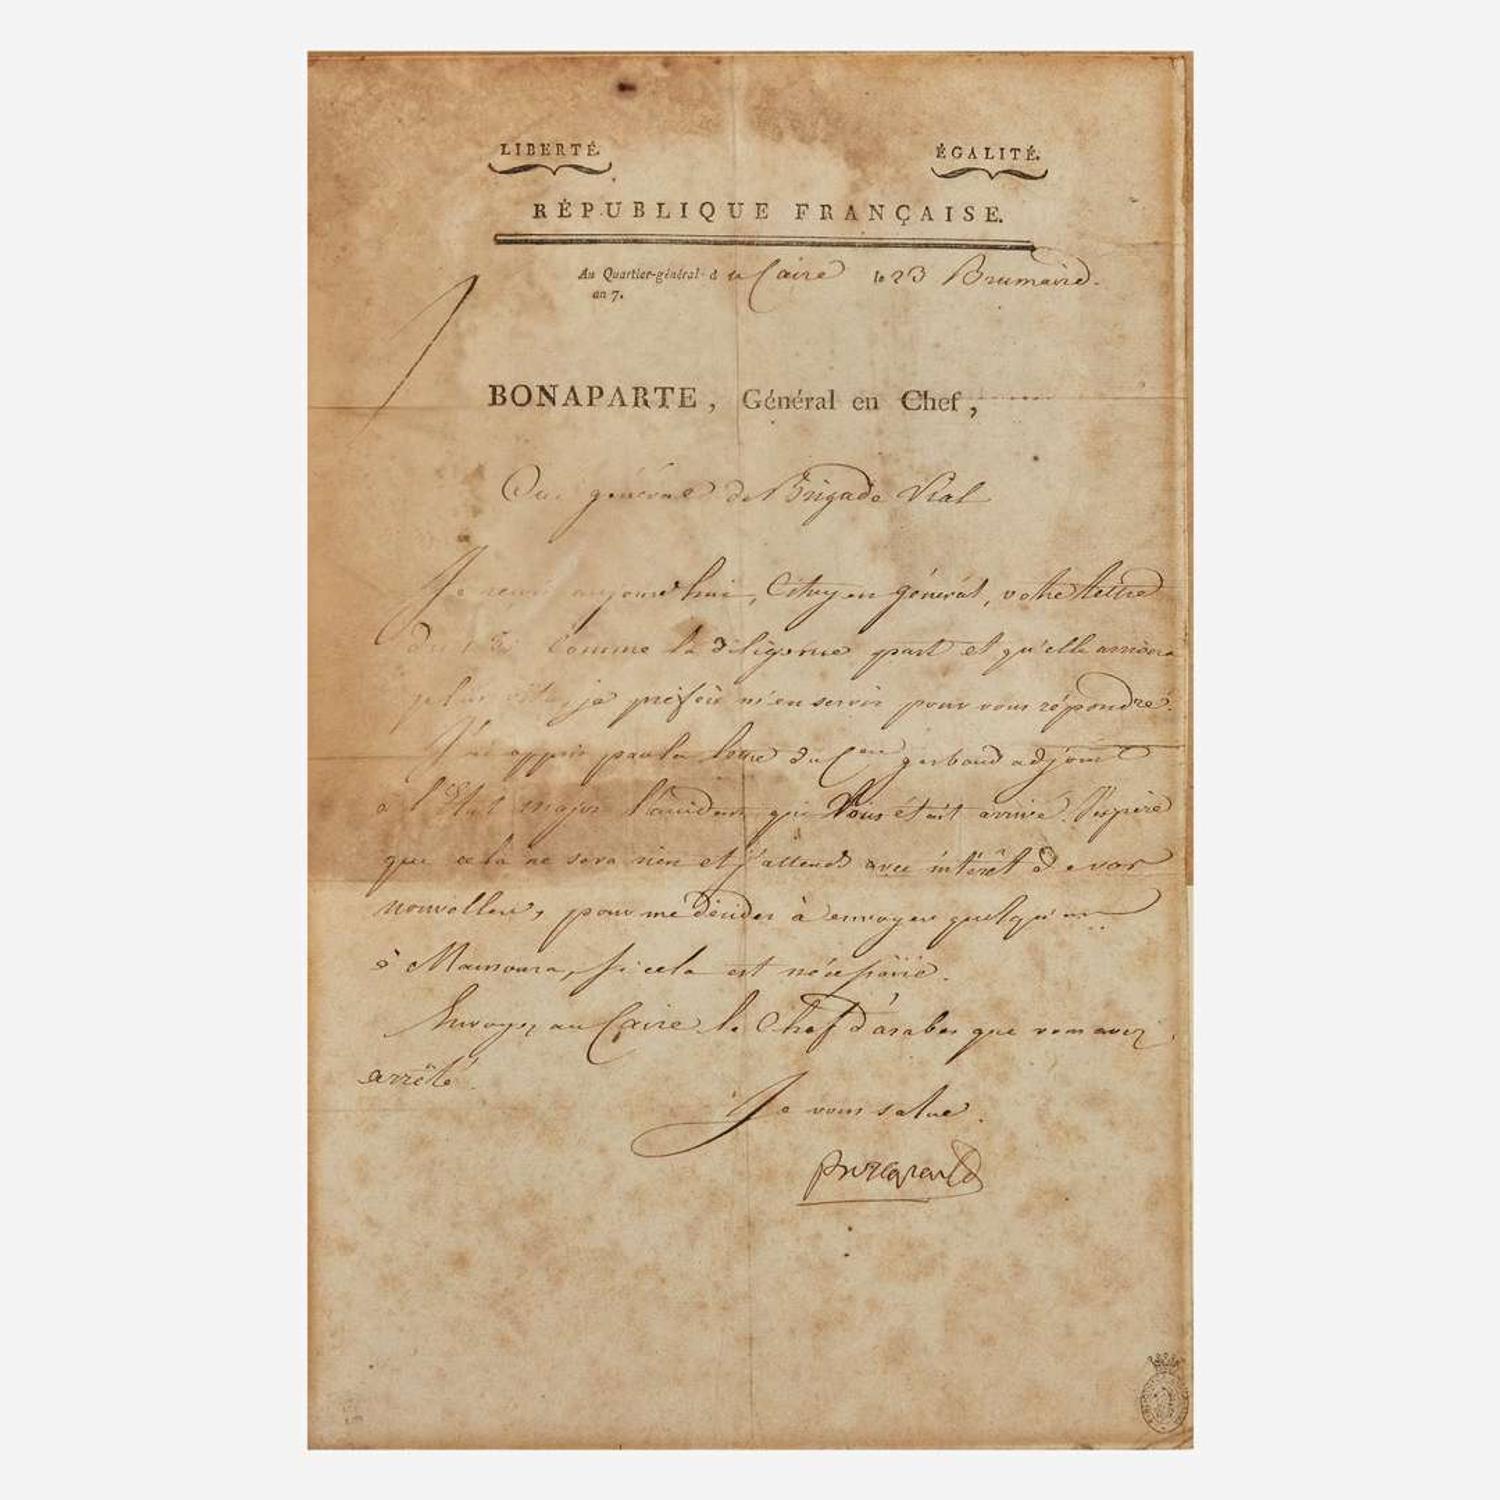 LIBERTÉ.
ÉGALITÉ.
RÉPUBLIQUE FRANÇAISE.
Au Quartier-général d u Caire le 23 Brumaire.
an 7.
BONAPARTE, Général en Chef,
Au général de Brigade Vial
Je reçois aujourd'hui, Citoyen général, votre lettre
du Comme la diligence part et qu'elle arrivera
plus vite, je préfère m'en servir pour vous répondre.
J'ai appris par la lettre du Cen gerbaud adjoint
à l'Etat major l'accident qui Vous était arrivé. J'espère
que cela ne sera rien et j'attends avec intérêt de vos
nouvelles, pour me décider à envoyer quelqu'un
à Mansoura, si cela est nécessaire.
Envoyez au Caire le Chef d'arabes que vous avez
arrêté.
Je vous salue.